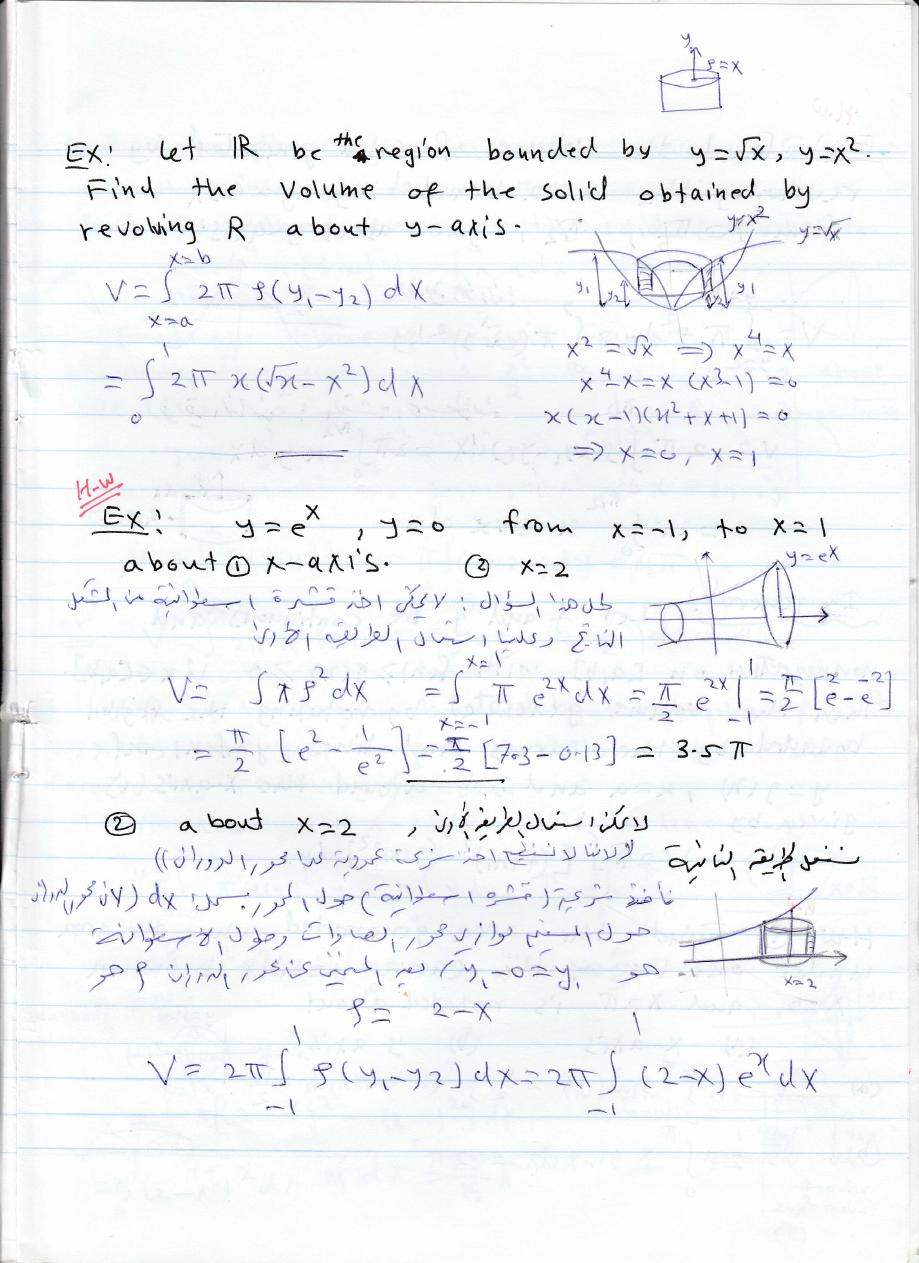 y
ρ=x
Ex: Let R be the region bounded by y=√x, y=x².
Find the Volume of the solid obtained by
revolving R about y-axis.
y=x² y=√x
V = ∫_{x=a}^{x=b} 2π ρ(y₁-y₂) dx
y₁ y₂ y₂ y₁
x² = √x ⇒ x⁴=x
= ∫_0^1 2π x(√x - x²) dx
x⁴-x = x(x³-1) = 0
x(x-1)(x²+x+1) = 0
⇒ x=0, x=1
H-W
Ex: y=eˣ, y=0 from x=-1, to x=1
about ① x-axis. ② x=2
y=eˣ
لحل هذا السؤال: لا يمكن اخذ قشرة اسطوانية من الشكل
الناتج وعلينا استعمال الطريقة الأولى
V = ∫ π ρ² dx = ∫_{x=-1}^{x=1} π e^{2x} dx = π/2 e^{2x} |_{-1}^{1} = π/2 [e² - e^{-2}]
= π/2 [e² - 1/e²] = π/2 [7.3 - 0.13] = 3.5 π
② about x=2 , لا يمكن استعمال الطريقة الأولى
نستعمل طريقة الثانية
لأننا لا نستطيع اخذ شريحة عمودية على محور الدوران))
نأخذ شريحة (قشرة اسطوانية) حول المحور بسمك dx (لان محور الدوران
حول المستقيم يوازي محور الصادات وطول الاسطوانة
هو y₁-0=y₁) بعد عن محور الدوران ρ هو
x=2
ρ = 2-x
V = 2π ∫_{-1}^{1} ρ(y₁-y₂) dx = 2π ∫_{-1}^{1} (2-x) eˣ dx